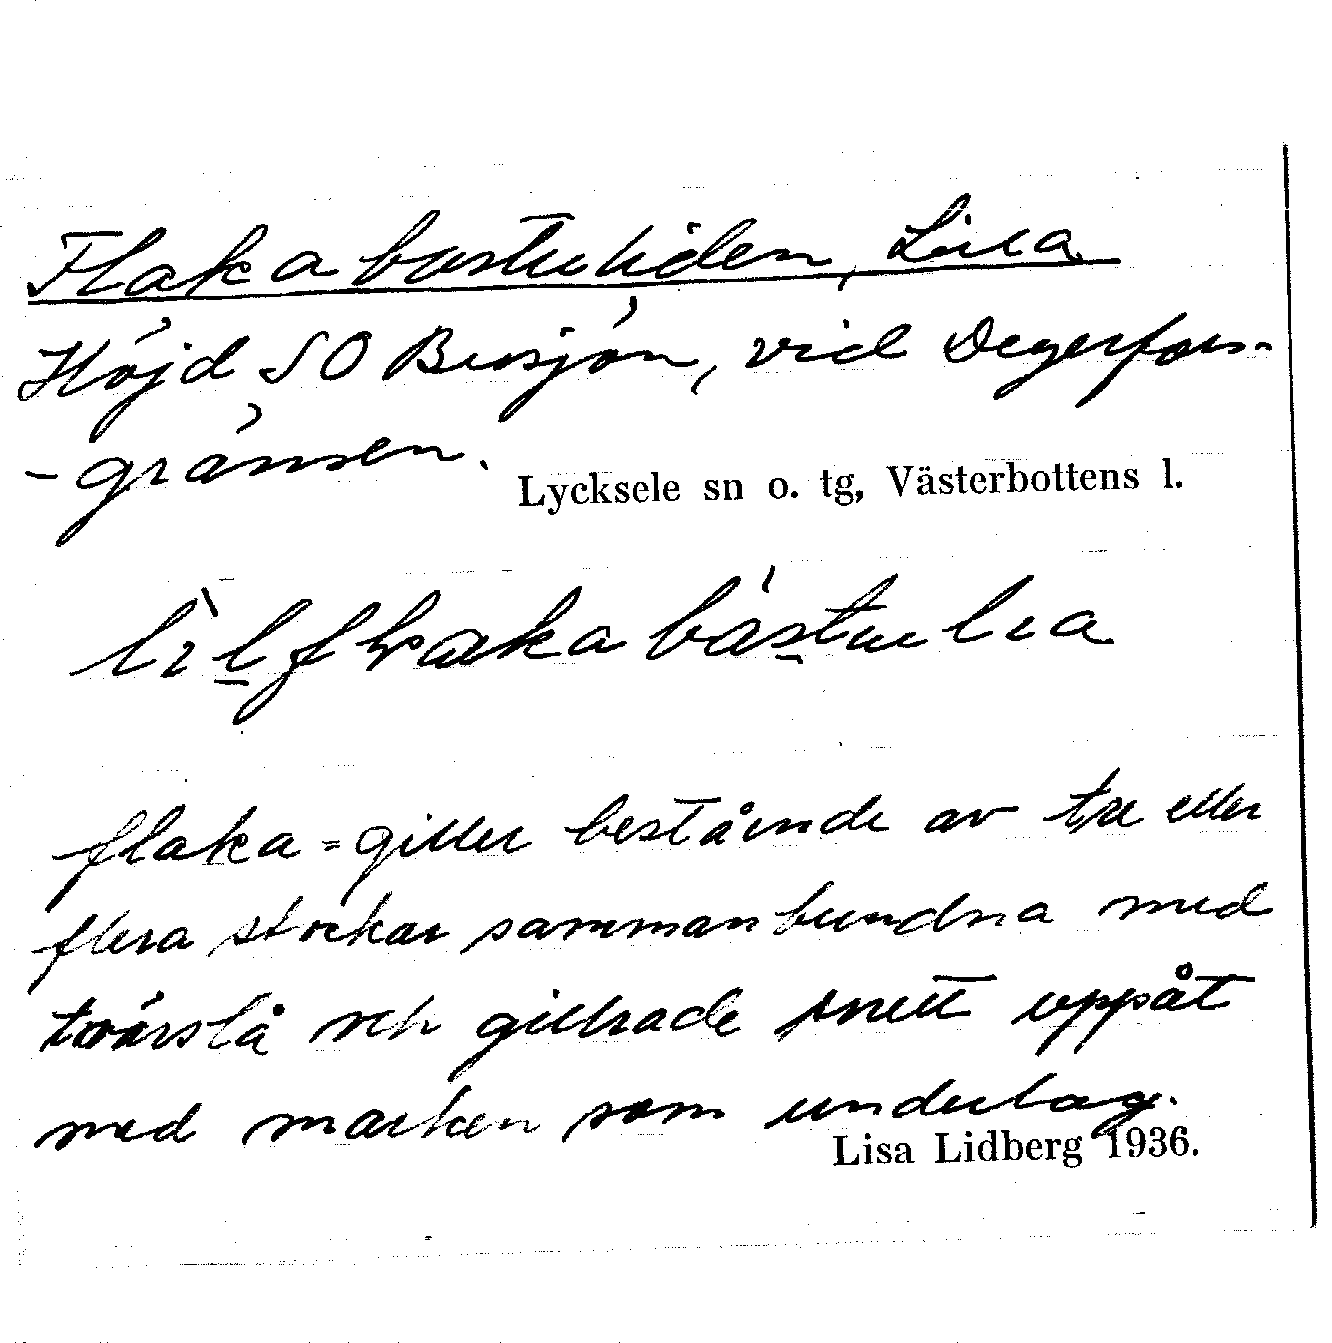 Flakabastuliden, Lilla
Höjd SO Busjön, vid Degerfors-
-gränsen.
Lycksele sn o. tg, Västerbottens l.
flaka = giller bestående av tre eller
flera stockar sammanbundna med
tvärslå och gillrade snett uppåt
med marken som underlag.
Lisa Lidberg 1936.